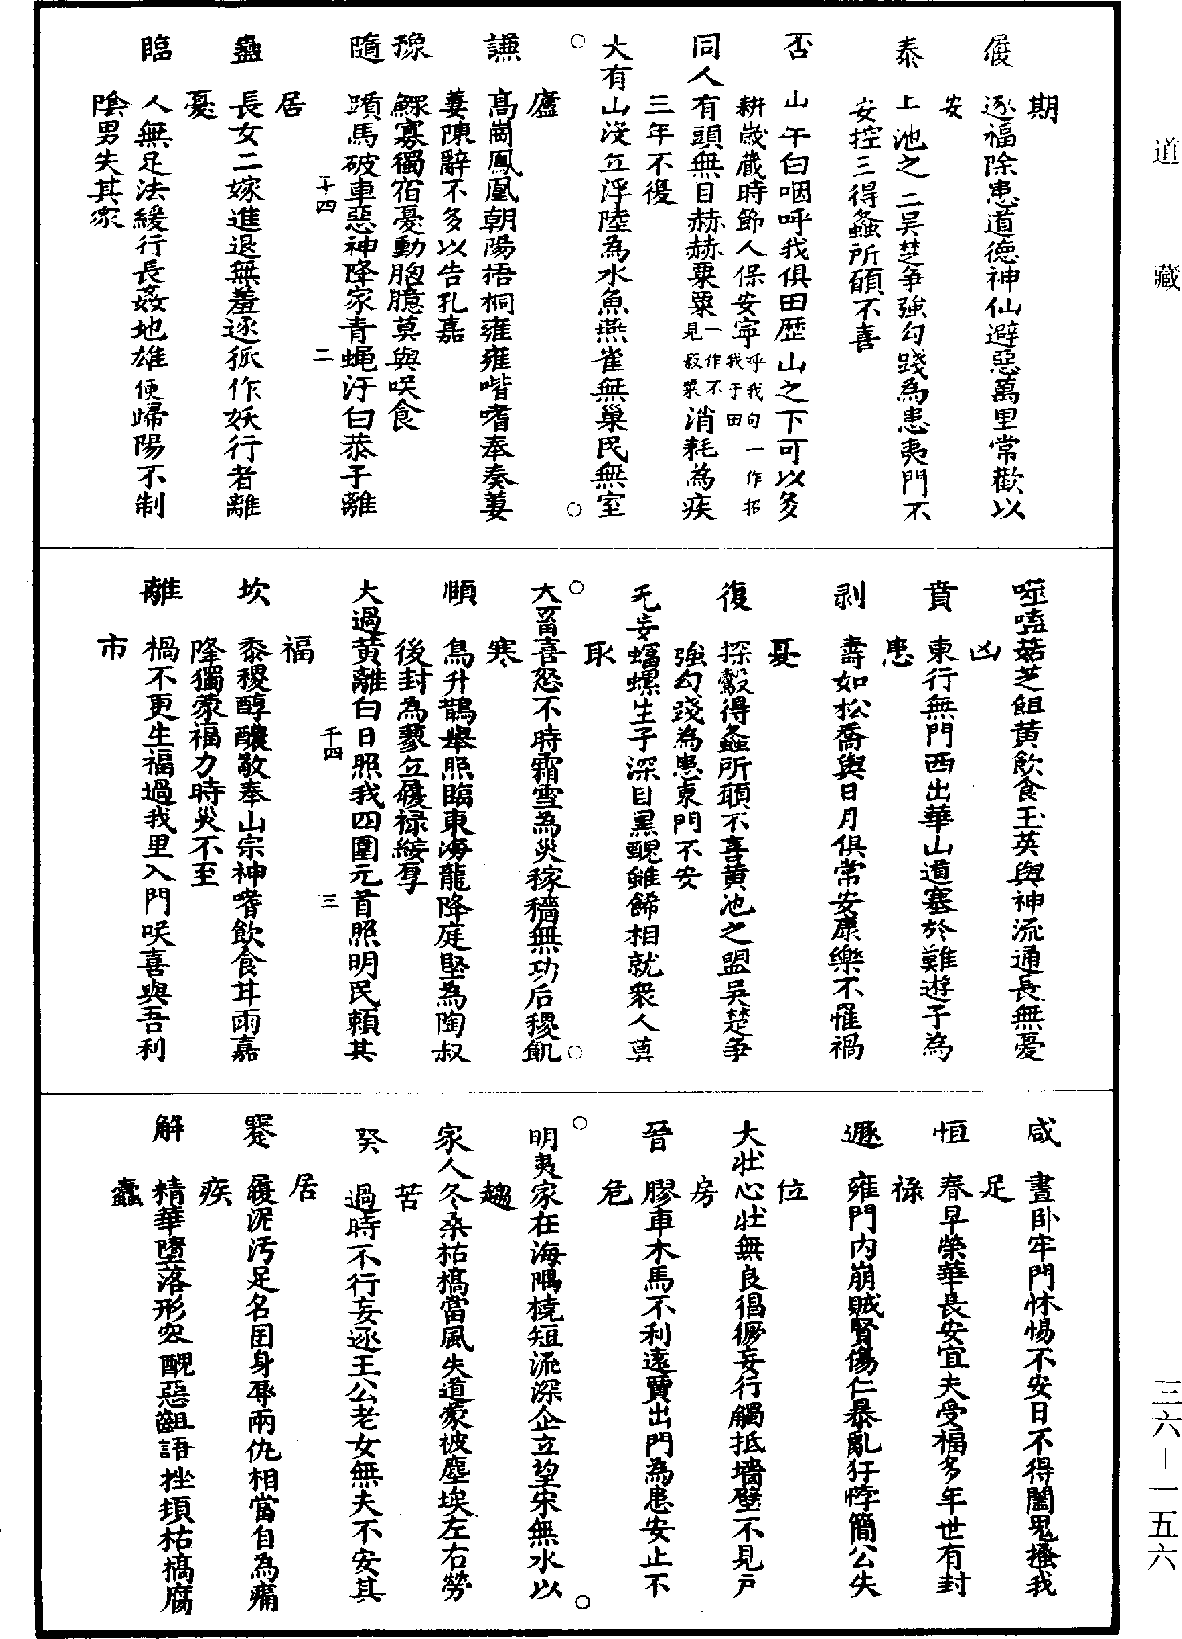 道藏
期
履 逐福除患道德神仙避惡萬里常歡以
安
泰 上池之二吳楚爭強勾踐為患夷門不
安控三得螽所願不喜
否 山午臼咽呼我俱田歷山之下可以多
耕歲藏時節人保安寧呼我句一作招我于田
同人有頭無目赫赫粟粟一作不見菽粟消耗為疾
三年不復
大有山沒丘浮陸為水魚燕雀無巢民無室
廬
謙 高崗鳳凰朝陽梧桐雍雍喈喈奉奏萋
萋陳辭不多以告孔嘉
豫 鰥寡獨宿憂動胸臆莫與咲食
隨 躓馬破車惡神降家青蠅汙白恭子離
居
十四 二
蠱 長女二嫁進退無羞逐狐作妖行者離
憂
臨 人無足法緩行長姦地雄便歸陽不制
陰男失其家
噬嗑菇芝俎黃飲食玉英與神流通長無憂
凶
賁 東行無門西出華山道塞於難遊子為
患
剝 壽如松喬與日月俱常安康樂不罹禍
憂
復 探鷇得螽所願不喜黃池之盟吳楚爭
強勾踐為患東門不安
无妄蝠螺生子深目黑醜雖餙相就衆人莫
取
大畜喜怒不時霜雪為災稼穡無功后稷飢
寒
頤 鳥升鵲舉照臨東海龍降庭堅為陶叔
後封為蓼丘履祿綏厚
大過黃離白日照我四圍元首照明民賴其
福
千四 三
坎 黍稷醇醲敬奉山宗神嗜飲食甘雨嘉
降獨蒙福力時災不至
離 禍不更生福過我里入門咲喜與吾利
市
咸 晝卧牢門怵惕不安日不得闔鬼搔我
足
恒 春早榮華長安宜夫受福多年世有封
祿
遯 雍門內崩賊賢傷仁暴亂狂悖簡公失
位
大壯心壯無良猖獗妄行觸抵墻壁不見戶
房
晉 膠車木馬不利遠賈出門為患安止不
危
明夷家在海隅橈短流深企立望宋無水以
趨
家人冬桑枯槁當風失道蒙被塵埃左右勞
苦
癸 過時不行妄逐王公老女無夫不安其
居
蹇 履泥汚足名困身辱兩仇相當自為痛
疾
解 精華墮落形容醜惡齟語挫頊枯槁腐
蠹
三六—一五六